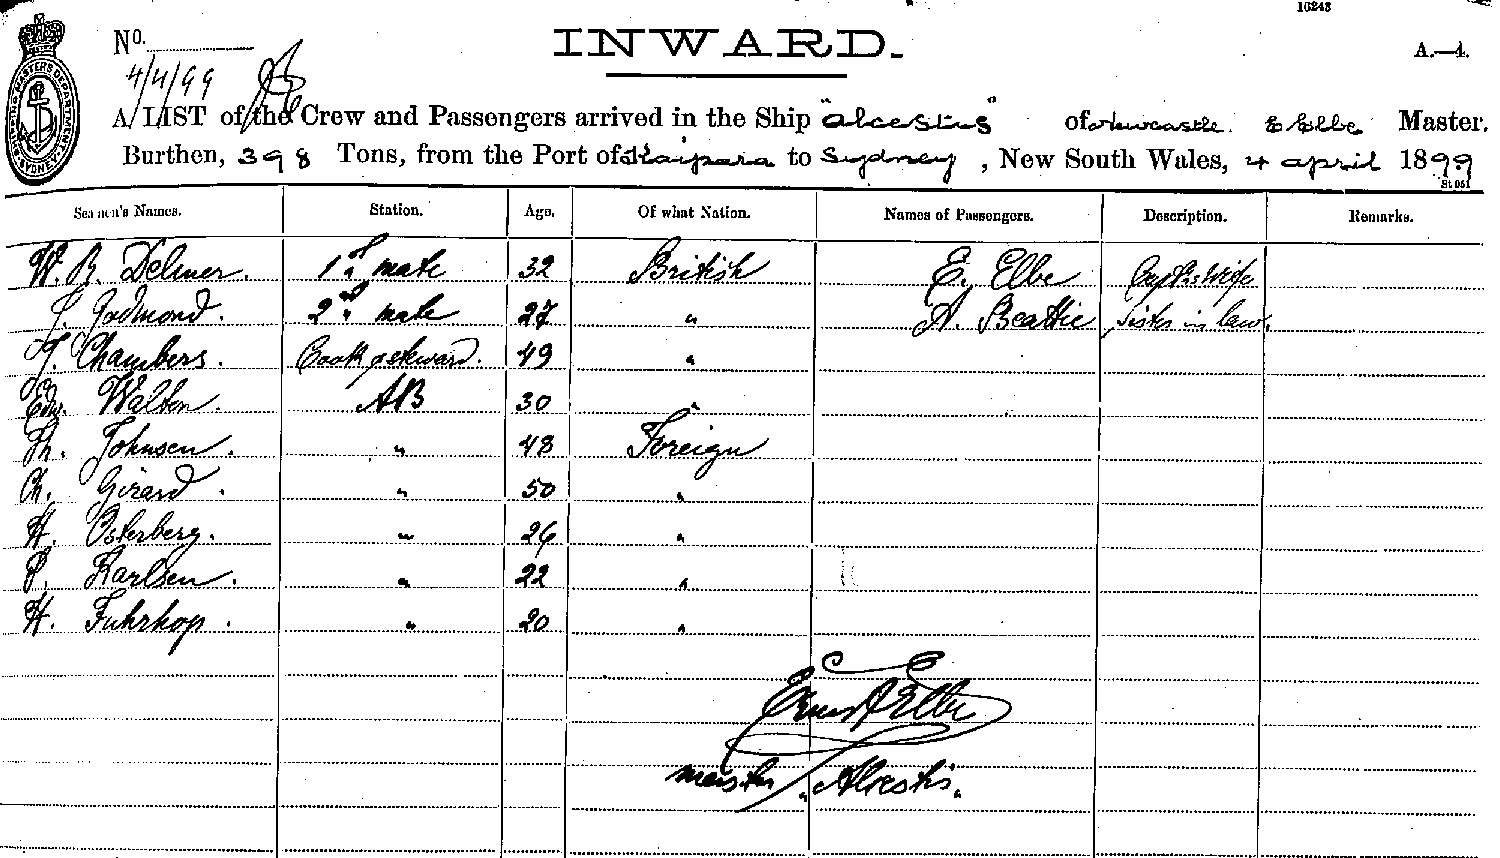 16243
No.
INWARD.
A.—4.
4/4/99
A LIST of the Crew and Passengers arrived in the Ship "Alcestis" of Newcastle E Elbe Master.
Burthen, 398 Tons, from the Port of Kaipara to Sydney, New South Wales, 4 April 1899
St 051
Seamen's Names. Station. Age. Of what Nation. Names of Passengers. Description. Remarks.
W. B. Delmer. 1st mate 32 British E. Elbe Capt's wife
Godmond. 2nd mate 27 " A. Beattie sister in law.
T. Chambers. Cook & steward. 49 "
Edw. Walton. AB 30 "
Th. Johnsen. " 48 Foreign
Ch. Girard. " 50 "
H. Osterberg. " 26 "
P. Karlsen. " 22 "
H. Fuhrhop. " 20 "
Ernest Elbe
master "Alcestis"